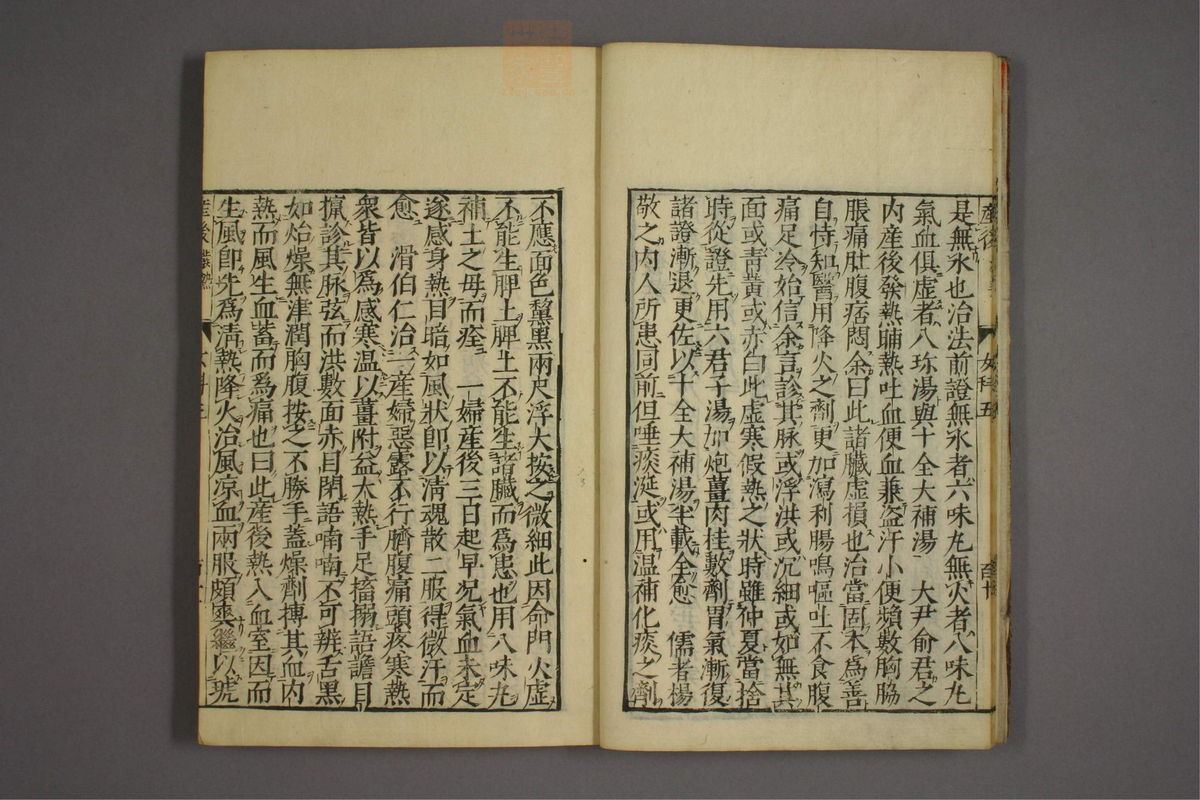 是無水也治法前證無水者六味丸無火者八味丸
氣血俱虛者八珎湯與十全大補湯　大尹俞君之
内産後發熱晡熱吐血便血兼盗汗小便頻數胸脇
脹痛肚腹痞悶余曰此諸臟虛損也治當固本爲善
自恃知醫用降火之劑更加瀉利腸鳴嘔吐不食腹
痛足冷始信余言診其脉或浮洪或沉細或如無其
面或青黄或赤白此虛寒假熱之狀時雖仲夏當捨
時從證先用六君子湯加炮薑肉桂數劑胃氣漸復
諸證漸退更佐以十全大補湯半載全愈　儒者楊
敬之内人所患同前但唾痰涎或用温補化痰之劑
産後
女科五
不應面色黧黒兩尺浮大按之微細此因命門火虛
不能生脾土脾土不能生諸臟而爲患也用八味丸
補土之母而痊　一婦産後三日起早况氣血未定
遂感身熱目暗如風狀即以清魂散二服得微汗而
愈　滑伯仁治一産婦惡露不行臍腹痛頭疼寒熱
衆皆以爲感寒温以薑附益大熱手足搐搦語譫目
撺診其脉弦而洪數面赤目閉語喃喃不可辨舌黒
如炲燥無津潤胸腹按之不勝手蓋燥劑搏其血内
熱而風生血蓄而爲痛也曰此産後熱入血室因而
生風即先爲清熱降火治風凉血兩服頗爽繼以琥
産後發熱